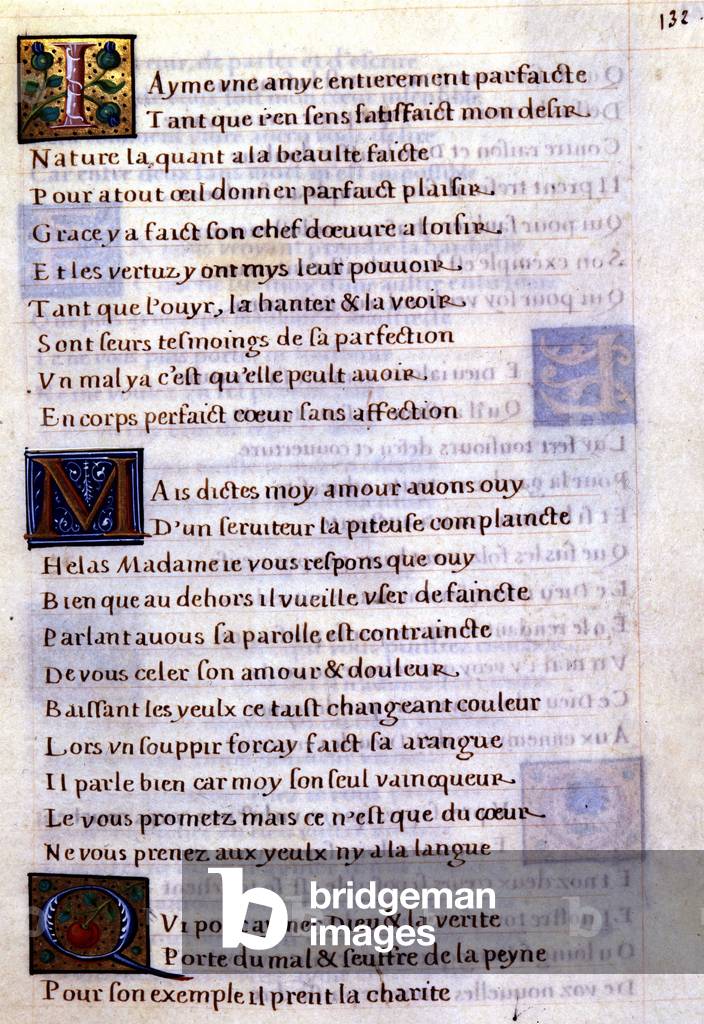 132
IAyme vne amye entierement parfaicte
Tant que i'en sens satisfaict mon desir
Nature la, quant a la beaulte faicte
Pour a tout œil donner parfaict plaisir.
Grace y a faict son chef dœuure a loisir.
Et les vertuz y ont mys leur pouuoir
Tant que l'ouyr, la hanter & la veoir
Sont seurs tesmoings de sa parfection
Vn mal y a c'est qu'elle peult auoir.
En corps perfaict cœur sans affection
MAis dictes moy amour auons ouy
D'un seruiteur la piteuse complaincte
Helas Madame ie vous respons que ouy
Bien que au dehors il vueille vser de faincte
Parlant a vous sa parolle est contraincte
De vous celer son amour & douleur
Baissant les yeulx ce taist changeant couleur
Lors vn souppir forcay faict sa arangue
Il parle bien car moy son seul vaincqueur
Le vous prometz mais ce n'est que du cœur
Ne vous prenez aux yeulx ny a la langue
QVi pour aymer Dieu & la verite
Porte du mal & seuffre de la peyne
Pour son exemple il prent la charite
b bridgeman
images